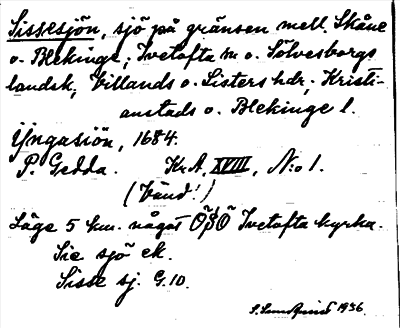 Sissesjön, sjö på gränsen mell. Skåne
o. Blekinge; Ivetofta sn o. Sölvesborgs
landsk., Villands o. Listers hdr, Kristi-
anstads o. Blekinge l.
Yngasiön, 1684.
P. Gedda. Kr.A, XVIII, N:o 1.
(Vänd!)
Läge 5 km. något ÖSÖ Ivetofta kyrka.
Sie sjö ek.
Sisse sj. G.10.
1936